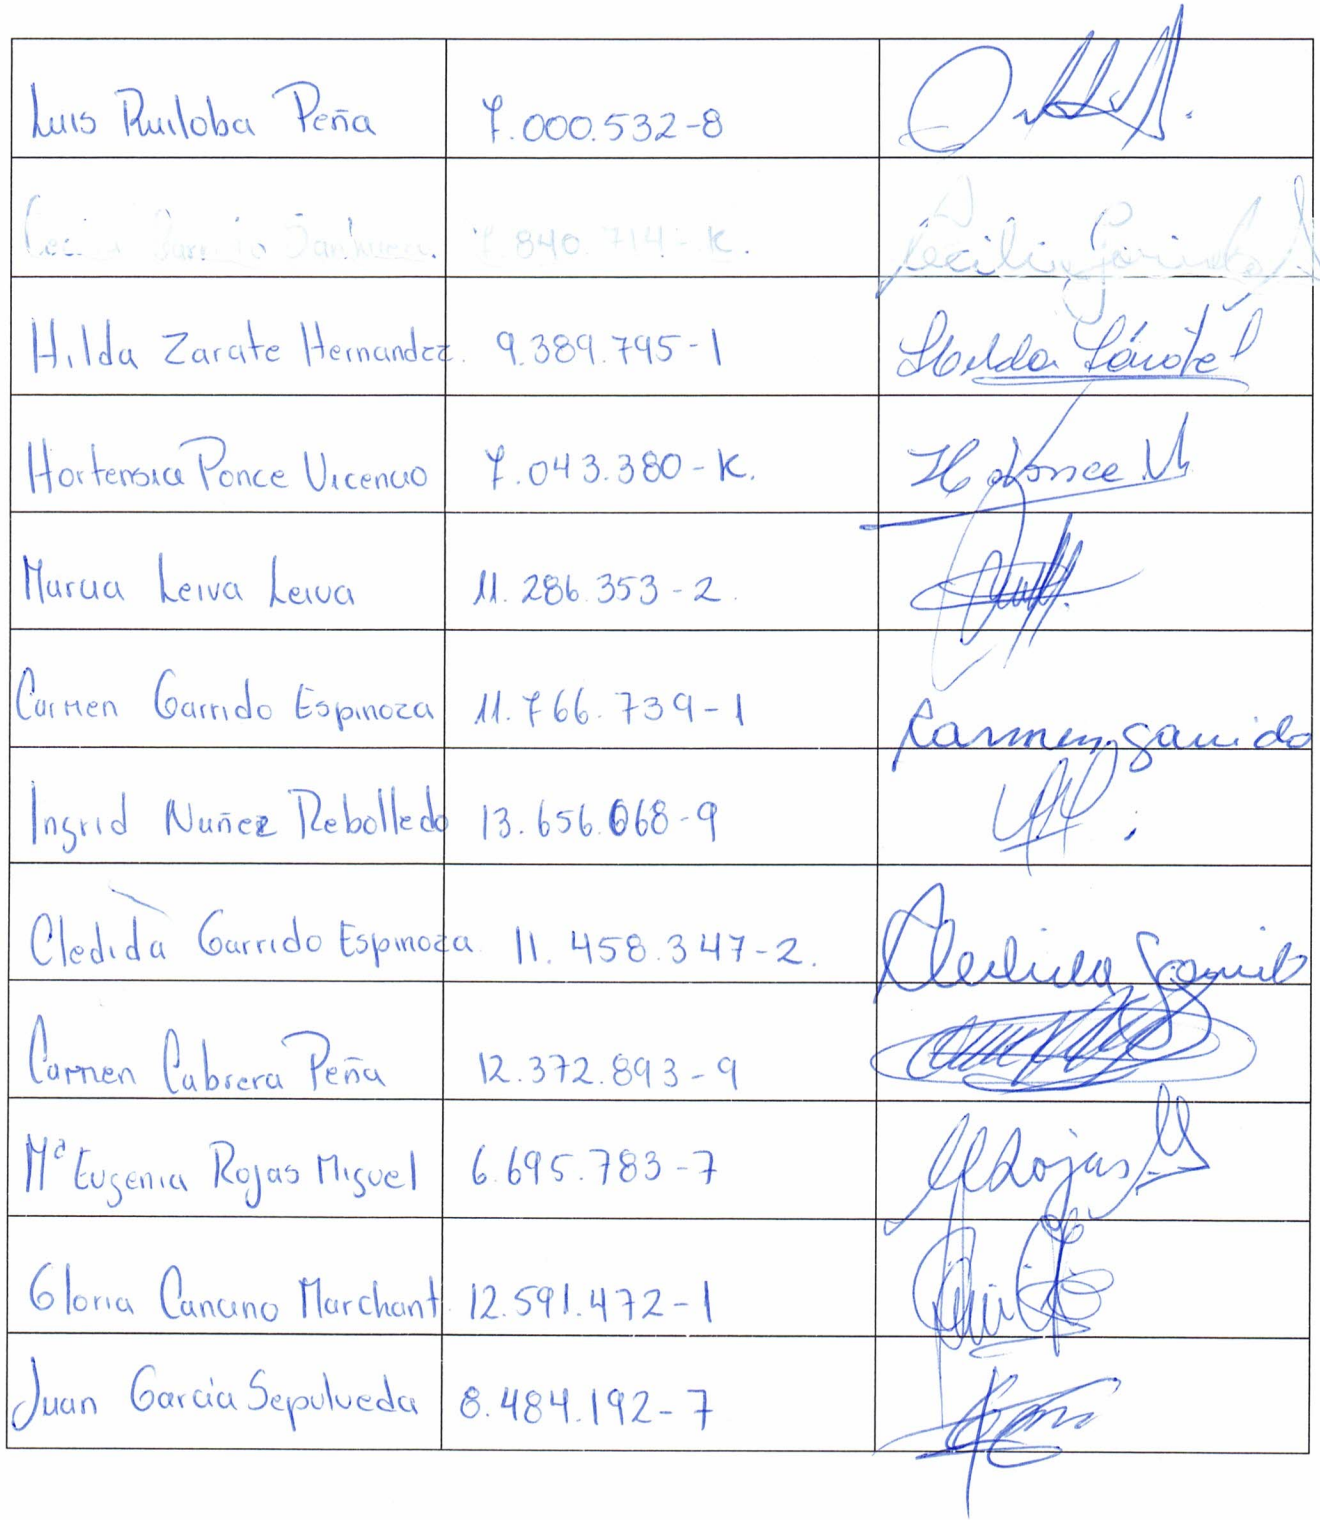 Luis Ruiloba Peña 7.000.532-8
840.714-K. Cecilia
Hilda Zarate Hernandez. 9.389.795-1 Hilda Zárate
Hortensia Ponce Vicencio 7.043.380-K. H Ponce V
Maria Leiva Leiva 11.286.353-2.
Carmen Garrido Espinoza 11.766.739-1 Carmen garrido
Ingrid Nuñez Rebolledo 13.656.068-9
Cledida Garrido Espinoza 11.458.347-2. Cledida Garrido
Carmen Cabrera Peña 12.372.893-9
Mª Eugenia Rojas Miguel 6.695.783-7 MRojas M
Gloria Cancino Marchant 12.591.472-1
Juan Garcia Sepulveda 8.484.192-7